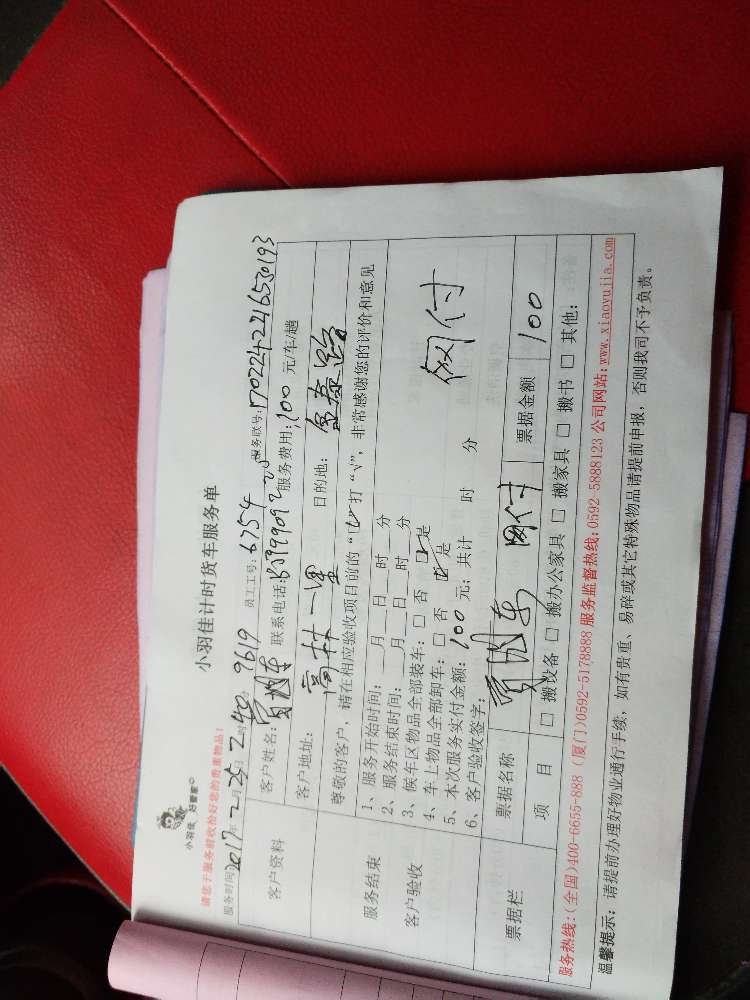 小羽佳 好管家
小羽佳计时货车服务单
请您于服务前收拾好您的贵重物品!
服务时间:2017年2月25日 员工工号:6754 服务联号:170224224653093
客户资料
客户姓名: 联系电话: 服务费用:100元/车/趟
客户地址:高林一里 目的地:金泰路
尊敬的客户,请在相应验收项目前的“□”打“√”,非常感谢您的评价和意见
服务结束
客户验收
1、服务开始时间:__月__日__时__分
2、服务结束时间:__月__日__时__分
3、候车区物品全部装车:□ 否 ☑ 是
4、车上物品全部卸车:□ 否 ☑ 是
5、本次服务实付金额:100元;共计 时 分
6、客户验收签字:
网付
票据栏
票据名称 网付 票据金额 100
项 目 □ 搬设备 □ 搬办公家具 □ 搬家具 □ 搬书 □ 其他:
服务热线:(全国)400-6655-888 (厦门)0592-5178888 服务监督热线:0592-5888123 公司网站:www.xiaoyujia.com
温馨提示:请提前办理好物业通行手续,如有贵重、易碎或其它特殊物品请提前申报,否则我司不予负责。